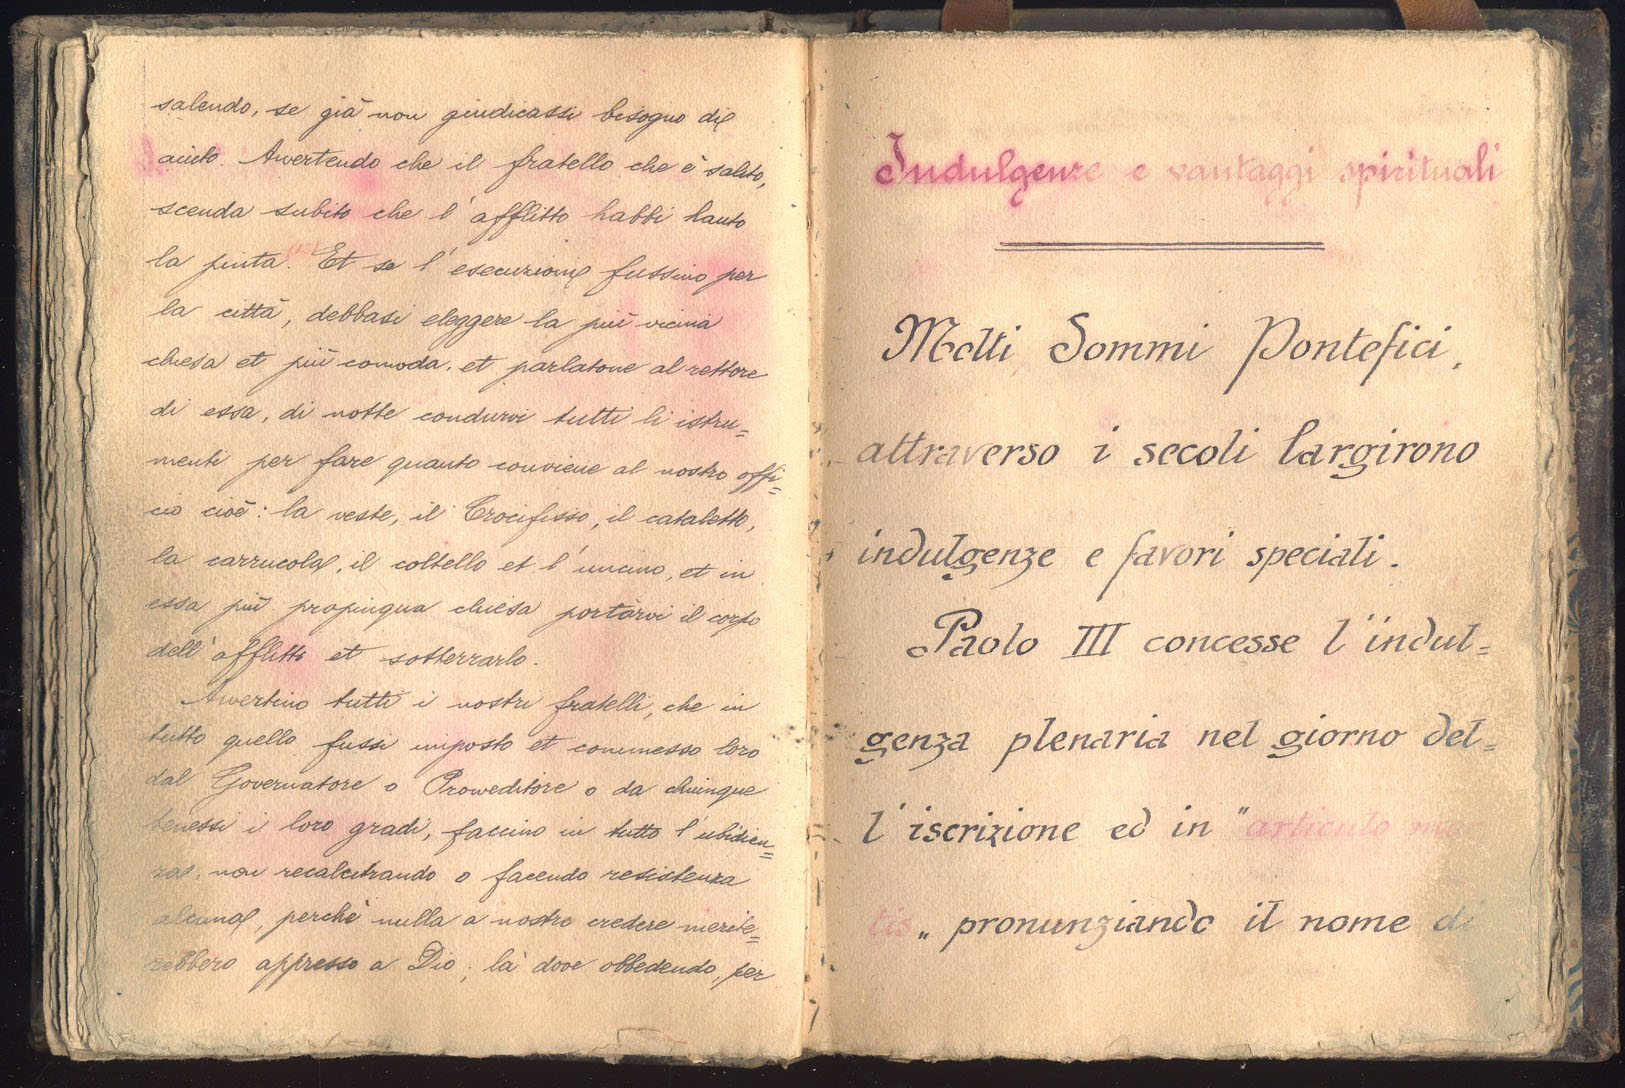 salendo, se già non giudicassi bisogno di
aiuto. Avvertendo che il fratello che è salito,
scenda subito che l'afflitto habbi hauto
la pinta. (12) Et se l'esecuzione fussino per
la città, debbasi eleggere la più vicina
chiesa et più comoda, et parlatone al rettore
di essa, di notte condurvi tutti li istru=
menti per fare quanto conviene al nostro offi=
cio cioè: la veste, il Crocifisso, il cataletto,
la carrucola, il coltello et l'uncino, et in
essa più propinqua chiesa portarvi il corpo
dell'afflitto et sotterrarlo.
Avvertino tutti i nostri fratelli, che in
tutto quello fussi imposto et commesso loro
dal Governatore o Proveditore o da chiunque
tenessi i loro gradi, faccino in tutto l'ubidien=
za, non recalcitrando o facendo resistenza
alcuna, perchè nulla a nostro credere merite=
rebbero appresso a Dio; là dove obbedendo, per
Indulgenze e vantaggi spirituali
Molti Sommi Pontefici,
attraverso i secoli largirono
indulgenze e favori speciali.
Paolo III concesse l'indul=
genza plenaria nel giorno del=
l'iscrizione ed in "articulo mor
tis„ pronunziando il nome di